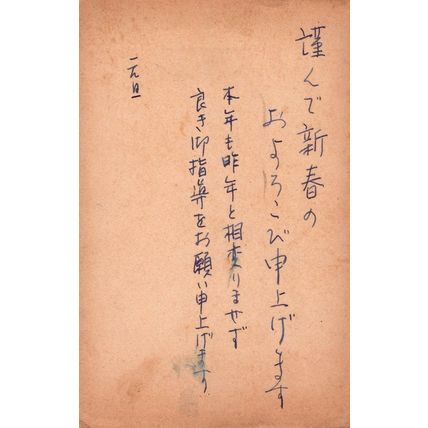 謹んで新春の
およろこび申上げます
本年も昨年と相変りませず
良き御指導をお願い申上げます
一元旦